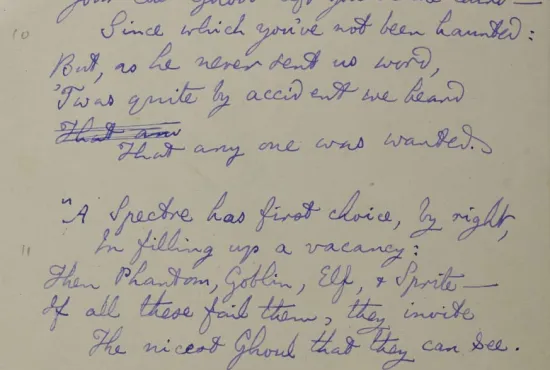 your last Ghost left you on the third—
10 Since which you've not been haunted:
But, as he never sent us word,
'Twas quite by accident we heard
That any
That any one was wanted.
"A Spectre has first choice, by right,
11 In filling up a vacancy:
Then Phantom, Goblin, Elf, & Sprite—
If all these fail them, they invite
The nicest Ghoul that they can see.